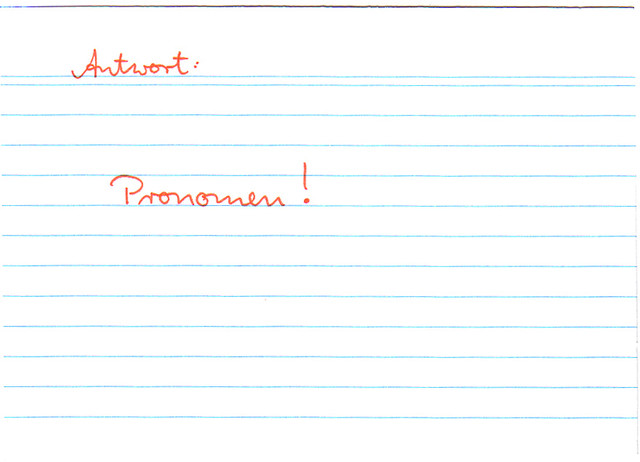 Antwort:
Pronomen!